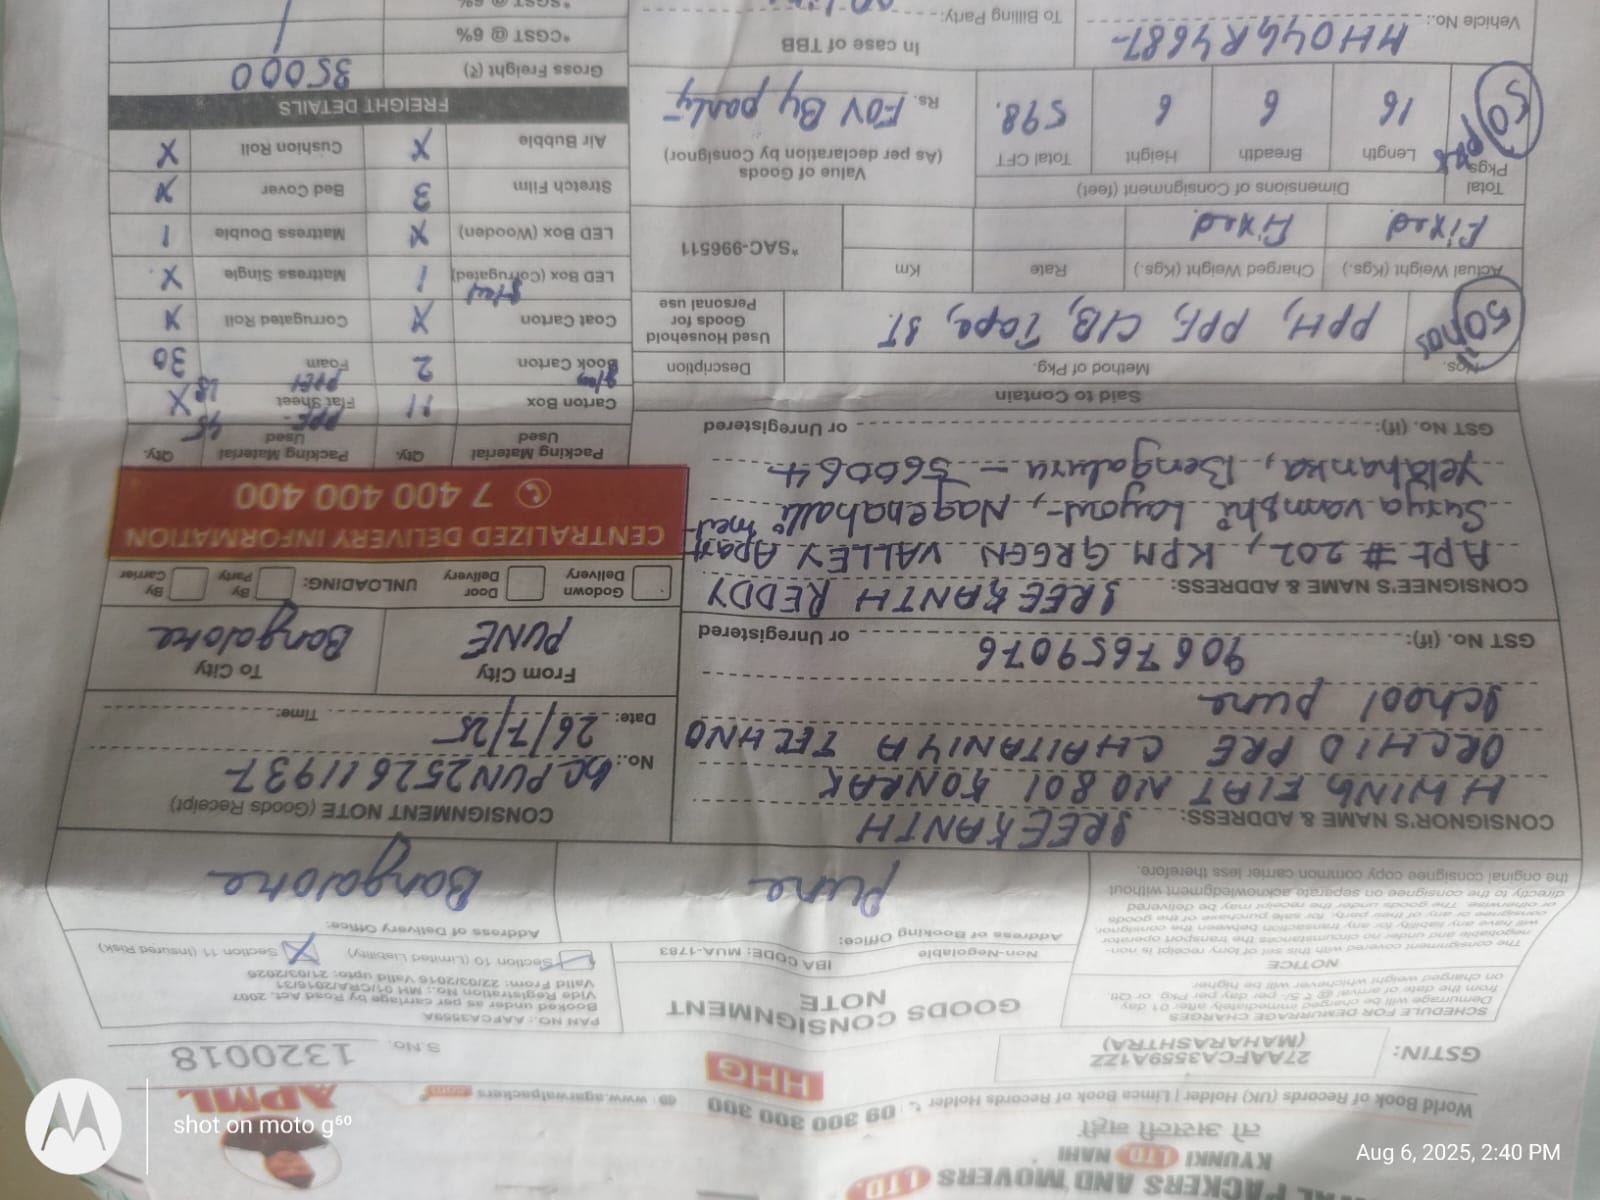 PACKERS AND MOVERS LTD.
KYUNKI LTD NAHI
तो असली नहीं
World Book of Records (UK) Holder | Limca Book of Records Holder
09 300 300 300
www.agarwalpackers.com
APML
GSTIN: 27AAFCA3559A1ZZ
(MAHARASHTRA)
HHG
S.No. 1320018
SCHEDULE FOR DEMURRAGE CHARGES
Demurrage will be charged immediately after 01 day
from the date of arrival @ ₹ 5/- per day per Pkg. or Qtl.
on charged weight whichever will be higher.
NOTICE
The consignment covered with this set of lorry receipt is non-
negotiable and under no circumstances the transport operator
will have any liability for any transaction between the consignor,
consignee or any of their party, for sale purchase of the goods
or otherwise. The goods under the receipt may be delivered
directly to the consignee on separate acknowledgment without
the original consignee copy common carrier less therefore.
GOODS CONSIGNMENT
NOTE
Non-Negotiable
IBA CODE: MUA-1783
PAN NO.: AAFCA3559A
Booked under as per carriage by Road Act, 2007
Vide Registration No.: MH 01/CRA/2016/31
Valid From: 22/03/2016 Valid upto: 21/03/2026
Section 10 (Limited Liability)
Section 11 (Insured Risk) X
Address of Booking Office:
Pune
Address of Delivery Office:
Bangalore
CONSIGNOR'S NAME & ADDRESS: SREEKANTH
H WING FLAT NO 801 KONRAK
ORCHID PRE CHAITANIYA TECHNO
School pune
9067659076
GST No. (if): or Unregistered
CONSIGNMENT NOTE (Goods Receipt)
No.: PUN252611937
Date: 26/7/25 Time:
From City To City
PUNE Bangalore
Godown Delivery
Door Delivery
UNLOADING:
By Party
By Carrier
CONSIGNEE'S NAME & ADDRESS: SREEKANTH REDDY
APt # 202, KPM GREEN VALLEY Apart
ment
Surya vamshi Layout, Nagenahalli
Yelahanka, Bengaluru - 560064
GST No. (if): or Unregistered
CENTRALIZED DELIVERY INFORMATION
7 400 400 400
Said to Contain
Nos. Method of Pkg. Description
50 nos PPH, PPF, C/B, Tape, ST.
Used Household Goods for Personal use
Actual Weight (Kgs.) Charged Weight (Kgs.) Rate Km
*SAC-996511
Fixed Fixed
Total Pkgs. Dimensions of Consignment (feet)
Value of Goods
(As per declaration by Consignor)
Length Breadth Height Total CFT
50 16 6 6 598.
Rs. FOV By party
Vehicle No.: MH04GR4687
In case of TBB
To Billing Party:
Packing Material Used Qty. Packing Material Used Qty.
Carton Box 11 Flat Sheet X
Book Carton 2 Foam 30
Coat Carton X Corrugated Roll X
LED Box (Corrugated) 1 Mattress Single X
LED Box (Wooden) X Mattress Double 1
Stretch Film 3 Bed Cover X
Air Bubble X Cushion Roll X
FREIGHT DETAILS
Gross Freight (₹) 35000
*CGST @ 6%
*SGST @ 6%
shot on moto g⁶⁰
Aug 6, 2025, 2:40 PM